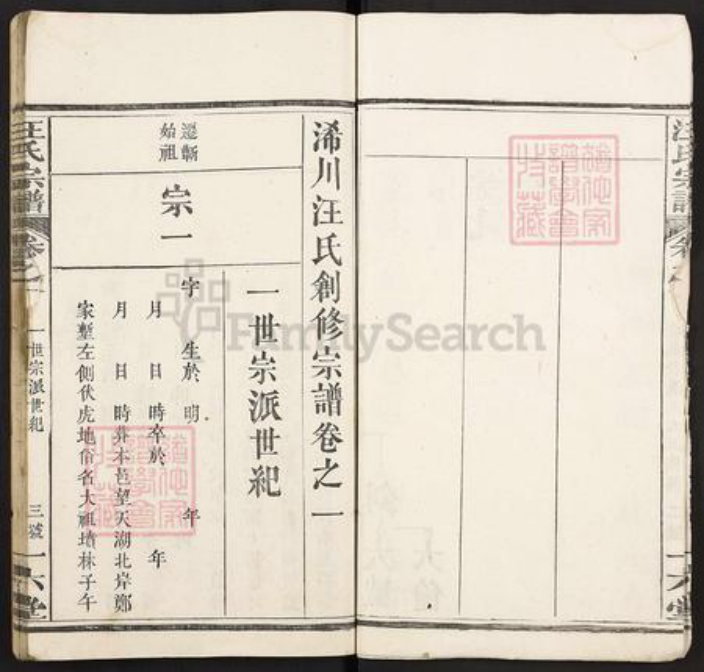 汪氏宗譜
卷之一
一六堂
浠川汪氏創修宗譜卷之一
一世宗派世紀
遷蘄
始祖
宗一
字 生於 明 年
月 日 時卒於 年
月 日 時葬本邑望天湖北岸鄭
家塹左側伏虎地俗名大祖墳林子午
汪氏宗譜
卷之一
一世宗派世紀
三號
一六堂
FamilySearch